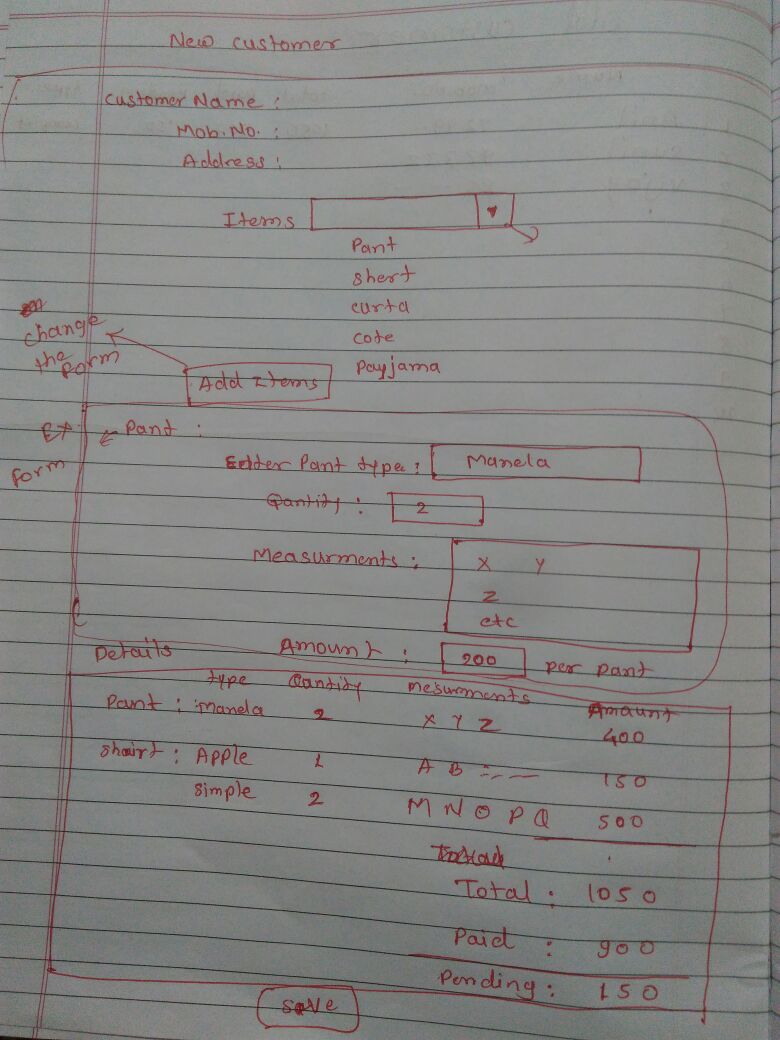 New customer
Customer Name :
Mob. No. :
Address :
Items
Pant
shert
curta
cote
Payjama
change
the Form
Add Items
Ex
form
Pant :
Enter Pant type : Manela
Qantity : 2
Measurments : X Y
Z
etc
Amount : 200 per pant
Details
type Qantity mesurments Amaunt
Pant : Manela 2 X Y Z 400
shairt : Apple 1 A B 150
simple 2 M N O P Q 500
Total : 1050
Paid : 900
Pending : 150
save